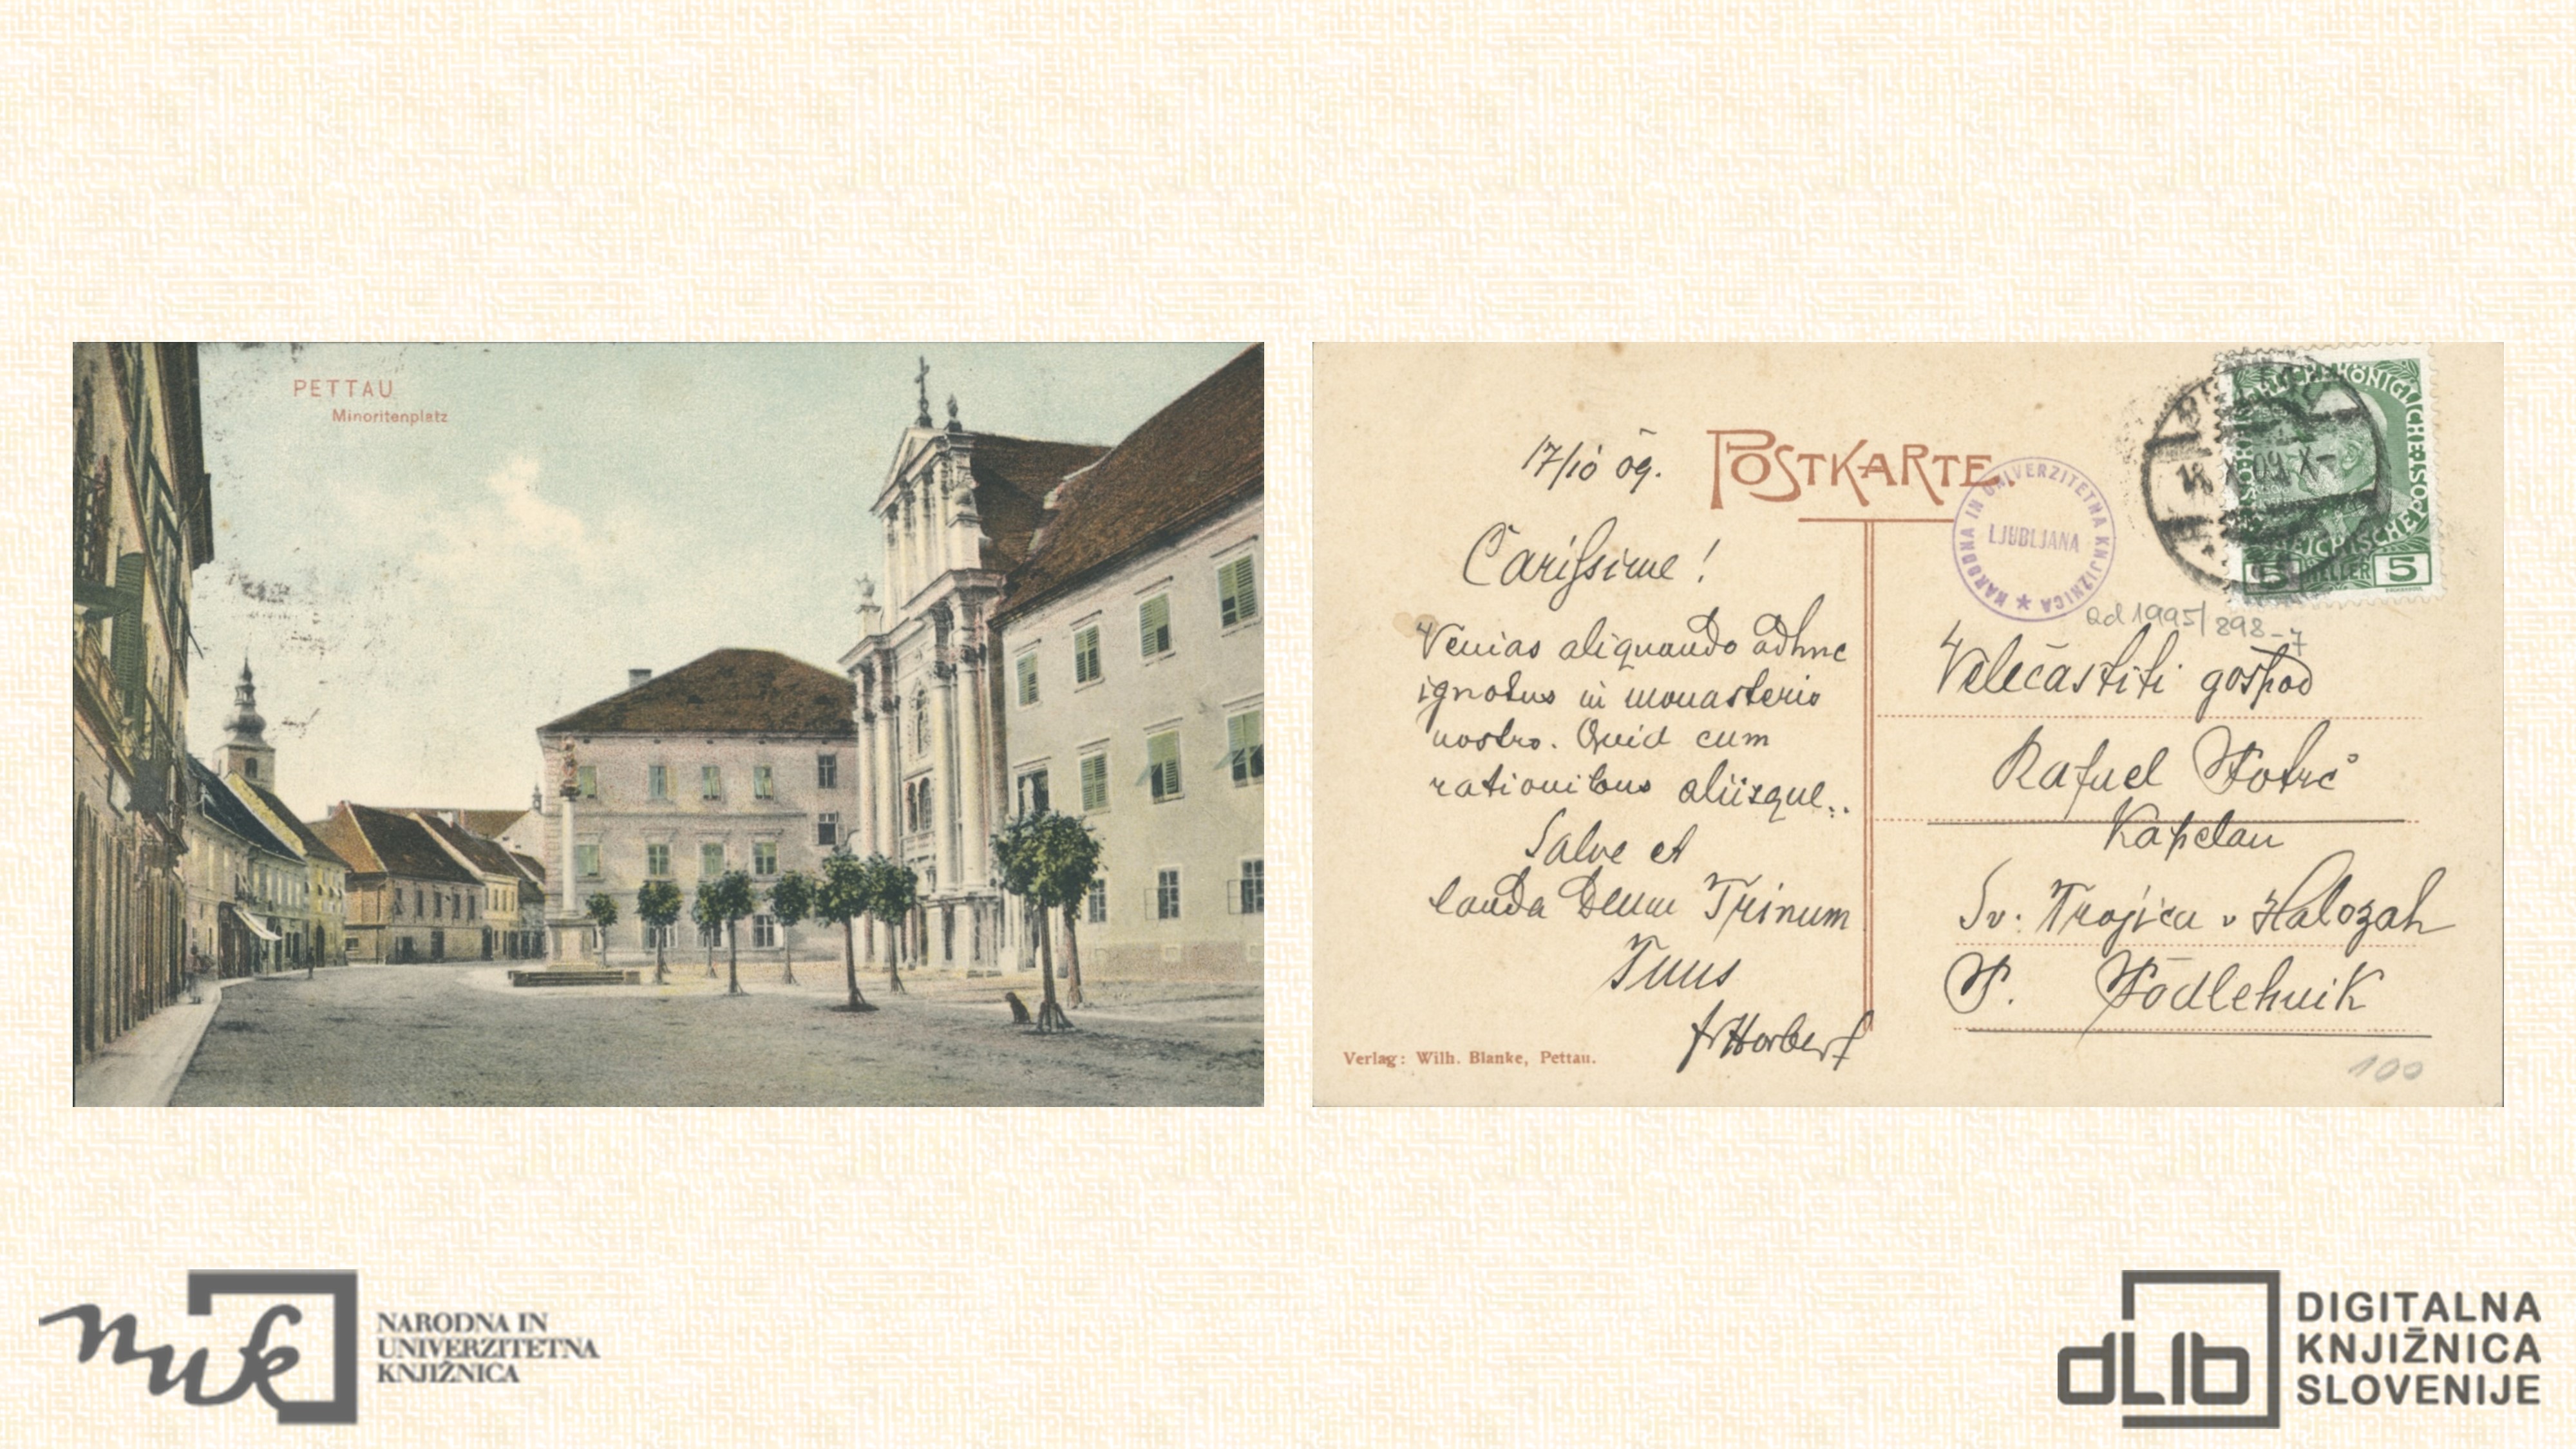 PETTAU
Minoritenplatz
POSTKARTE
17/10 09.
Carissime!
Venias aliquando adhuc
ignotus in monasterio
nostro. Quid cum
rationibus aliisque..
Salve et
lauda Deum Trinum
Tuus
fr Norbert
Verlag: Wilh. Blanke, Pettau.
NARODNA IN UNIVERZITETNA KNJIŽNICA
LJUBLJANA
18 X 09
5 HELLER 5
1995/898-7
Velečastiti gospod
Rafael
Kapelan
Sv. Trojica v Halozah
P. Podlehnik
100
nuk
NARODNA IN
UNIVERZITETNA
KNJIŽNICA
dLib
DIGITALNA
KNJIŽNICA
SLOVENIJE